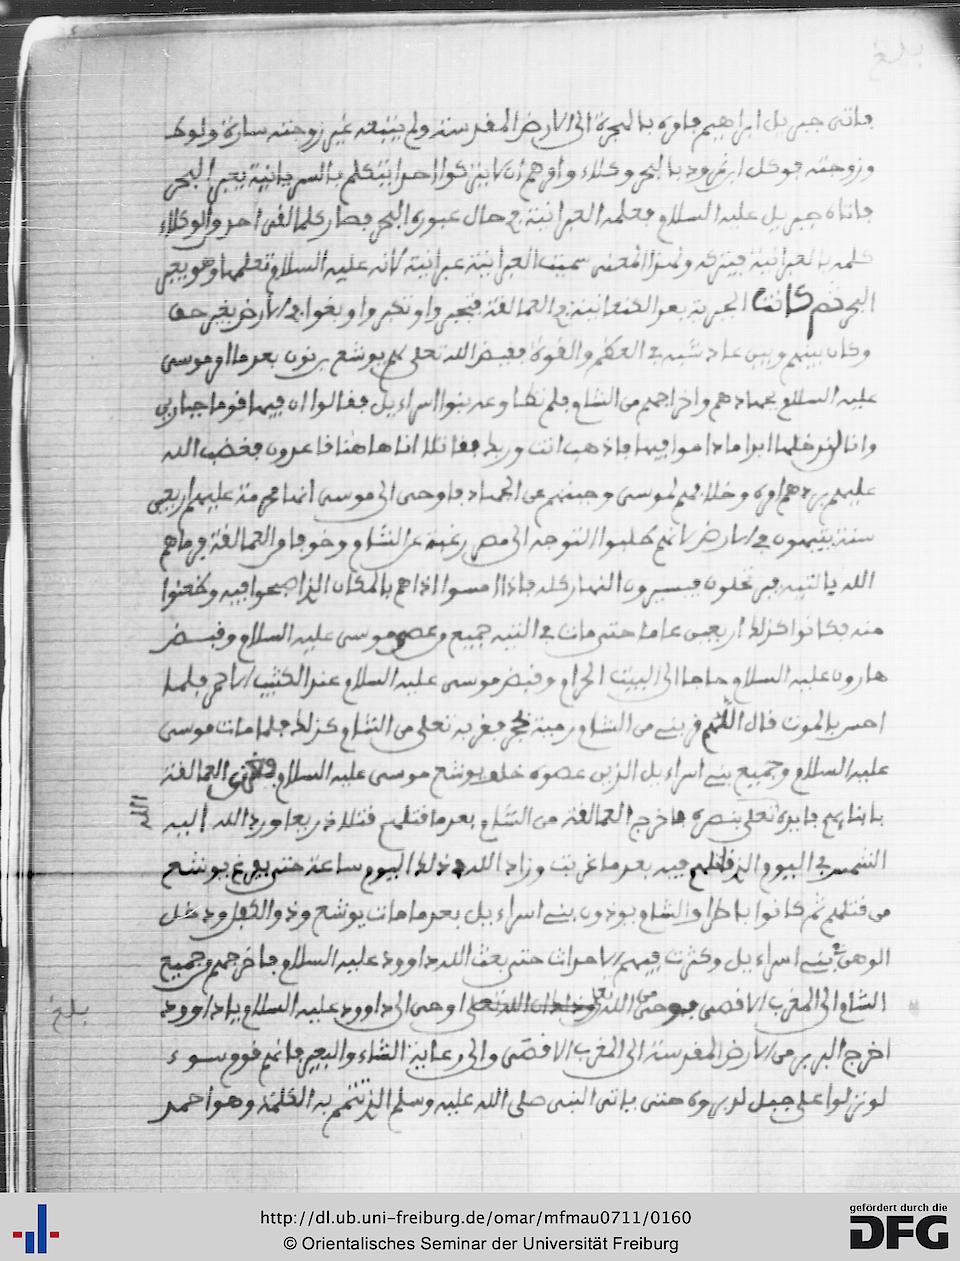 بلغ
فاتى جبريل ابراهيم فامره بالهجرة الى الارض المقدسة ولم يتبعه غير زوجته سارة ولوط
وزوجته فوكل النمرود بالبحر وكلاء وامرهم ان لا يتركوا احدا يتكلم بالسريانية يعبر البحر
فاتاه جبريل عليه السلام فعلمه العبرانية في حال عبوره البحر فصار كلما لقى احد من الوكلاء
كلمه بالعبرانية فيتركه ولهذا المعنى سميت العبرانية عبرانية لانه عليه السلام تعلمها وهو يعبر
البحر ثم كانت الجبرية بعد الكنعانية في العمالقة فتجبروا وتكبروا وبغوا في الارض بغير حق
وكان بينهم وبين عاد شبه في العظم والقوة فقيض الله تعلى لهم يوشع بن نون بعد ما امر موسى
عليه السلام بجهادهم واخراجهم من الشام فلم تطاوعه بنوا اسراءيل فقالوا ان فيها قوما جبارين
وانا لن ندخلها ابدا ما داموا فيها فاذهب انت وربك فقاتلا انا هاهنا قاعدون فغضب الله
عليهم بردهم امره وخلافهم لموسى وجبنهم عن الجهاد فاوحى الى موسى انها محرمة عليهم اربعين
سنة يتيهون في الارض لانهم طلبوا التوجه الى مصر رغبة عن الشام وخوفا من العمالقة فرماهم
الله بالتيه فيرتحلون فيسيرون النهار كله فاذا امسوا اذا هم بالمكان الذي اصبحوا فيه وظعنوا
منه فكانوا كذلك اربعين عاما حتى مات في التيه جميع من عصى موسى عليه السلام وقبض
هارون عليه السلام حاجا الى البيت الحرام وقبض موسى عليه السلام عند الكثيب الاحمر فلما
احس بالموت قال اللهم قربني من الشام رمية حجر فقربه تعلى من الشام كذلك فلما مات موسى
عليه السلام وجميع بني اسراءيل الذين عصوه خلف يوشع موسى عليه السلام العمالقة
بابنائهم فايده تعلى بنصره فاخرج العمالقة من الشام بعد ما قتلهم قتلا ذريعا ورد الله اليه
الله
الشمس في اليوم الذي قاتلهم فيه بعد ما غربت وزاد الله في ذلك اليوم ساعة حتى يفرغ يوشع
من قتلهم ثم كانوا باطراف الشام يوذون بني اسراءيل بعد ما مات يوشع وذو الكفل ودخل
الوهن في بني اسراءيل وكثرت فيهم الاحداث حتى بعث الله داوود عليه السلام فاخرجهم من جميع
الشام الى المغرب الاقصى بوحي من الله تعلى اوحى الى داوود عليه السلام يا داوود
بلغ
اخرج البربر من الارض المقدسة الى المغرب الاقصى والى رعاية الشاء والبعير فانهم قوم سوء
لو نزلوا على جبل لدبروه حتى ياتى النبى صلى الله عليه وسلم الذي تتم به الكلمة وهو احمد
http://dl.ub.uni-freiburg.de/omar/mfmau0711/0160
© Orientalisches Seminar der Universität Freiburg
gefördert durch die
DFG